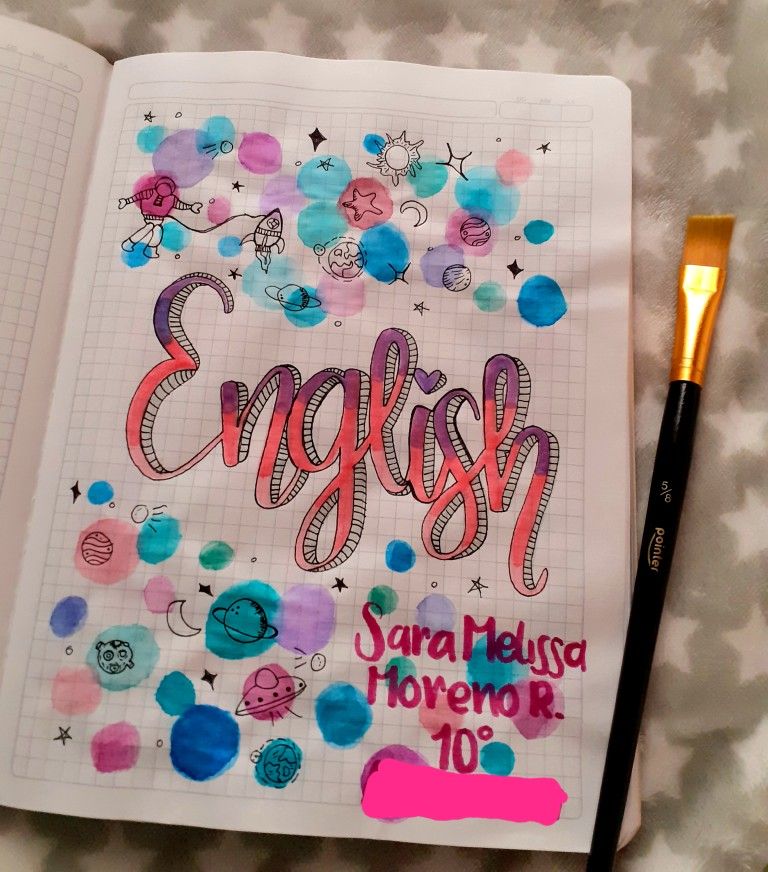 English
Sara Melissa
Moreno R.
10°
5/8
pointer